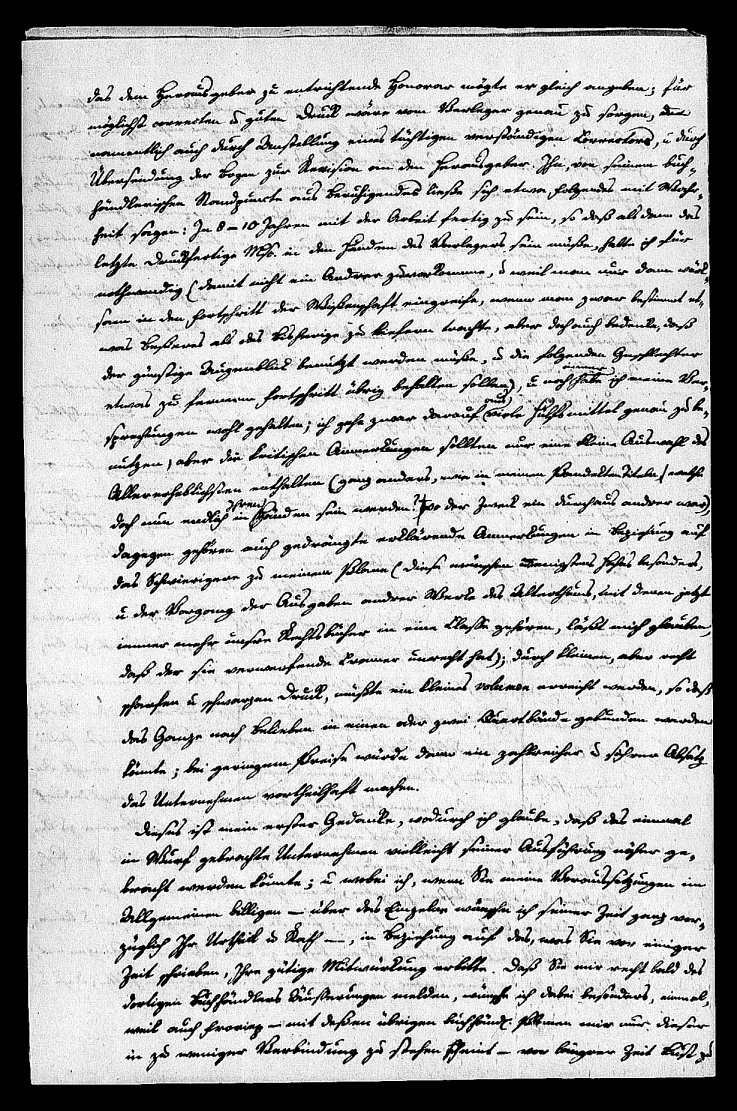 das dem Herausgeber zu entrichtende Honorar mögte er gleich angeben; für
möglichst correcten u guten Druck wäre vom Verleger genau zu sorgen,
namentlich auch durch Anstellung eines tüchtigen verständigen Correctors, u durch
Übersendung der Bogen zur Revision an den Herausgeber. Ihn, von seinem buch-
händlerischen Standpuncte aus Beruhigendes ließe sich etwa folgendes mit Wahr-
heit sagen: In 8–10 Jahren mit der Arbeit fertig zu sein, so daß alsdann das
letzte druckfertige Msc. in den Händen des Verlegers sein müße, halte ich für
nothwendig (damit nicht ein Andrer zuvorkomme, u weil man nur dann wirk-
sam in den Fortschritt der Wißenschaft eingreife, wenn man zwar bestimmt et-
was Beßeres als das Bisherige zu liefern trachte, aber doch auch bedenke, daß
der günstige Augenblick benutzt werden müße, u die folgenden Geschlechter
etwas zu fernerem Fortschritt übrig behalten sollen), u noch immer habe ich meine Ver-
sprechungen wohl gehalten; ich gehe zwar darauf aus, viele Hülfsmittel genau zu be-
nutzen, aber die kritischen Anmerkungen sollten nur eine kleine Auswahl des
Allererheblichsten enthalten (ganz anders, wie in meinem Pandekten Titel,
doch nun endlich in Händen sein werden? wo der Zweck ein durchaus andrer war)
dagegen gehören auch gedrängte erklärende Anmerkungen in Beziehung auf
das Schwierigere zu meinem Plane (diese wünschen wenigstens besonders,
u der Vorgang der Ausgaben andrer Werke des Alterthums, mit denen jetzt
immer mehr unsre Rechtsbücher in eine Classe gehören, läßt mich glauben,
daß der sie verwerfende Cramer unrecht hat); durch kleinen, aber recht
scharfen u schwarzen Druck, müßte ein kleines volumen erreicht werden, so daß
das Ganze nach Belieben in einen oder zwei Quartbände gebunden werden
könnte; bei geringem Preise würde dann ein zahlreicher u sichrer Absatz
das Unternehmen vortheilhaft machen.
Dieses ist mein erster Gedanke, wodurch ich glaube, daß das einmal
in Wurf gebrachte Unternehmen vielleicht seiner Ausführung näher ge-
bracht werden könnte; u wobei ich, wenn Sie meine Voraussetzungen im
Allgemeinen billigen – über das Einzelne wünsche ich seiner Zeit ganz vor-
züglich Ihr Urtheil u Rath –, in Beziehung auf das, was Sie vor einiger
Zeit schrieben, Ihre gütige Mitwirkung erbitte. Daß Sie mir recht bald des
dortigen Buchhändlers Äußerungen melden, wünsche ich dabei besonders, einmal,
weil auch – mit deßen übrigen buchhändl. Plänen mir nur dieser
in zu weniger Verbindung zu stehen scheint – vor längrer Zeit Lust zu